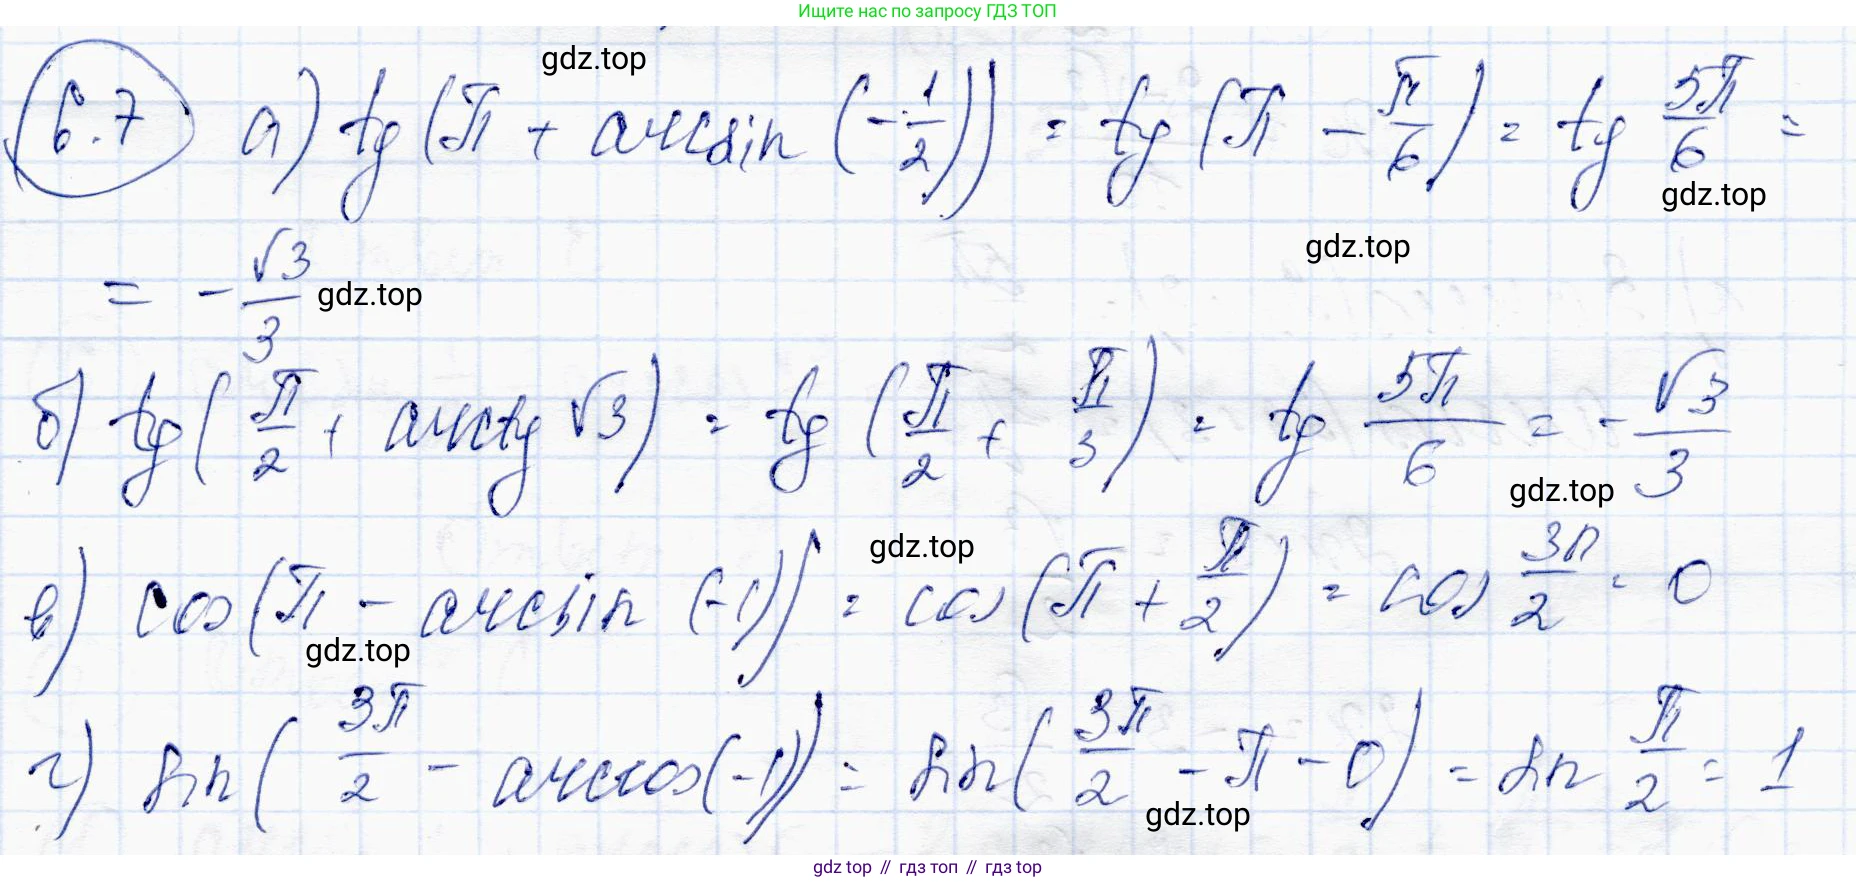 Ищите нас по запросу ГДЗ ТОП
gdz.top
6.7 а) tg(π + arcsin(-1/2)) = tg(π - π/6) = tg 5π/6 =
gdz.top
gdz.top
= -√3/3 gdz.top
б) tg(π/2 + arctg √3) = tg(π/2 + π/3) = tg 5π/6 = -√3/3
gdz.top
gdz.top
в) cos(π - arcsin(-1)) = cos(π + π/2) = cos 3π/2 = 0
gdz.top
г) sin(3π/2 - arccos(-1)) = sin(3π/2 - π - 0) = sin π/2 = 1
gdz.top
gdz top // гдз топ // гдз top